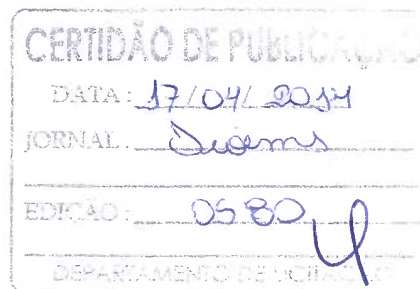 CERTIDÃO DE PUBLICAÇÃO
DATA: 17/04/2014
JORNAL:
EDIÇÃO: 0580
DEPARTAMENTO DE LICITAÇÃO